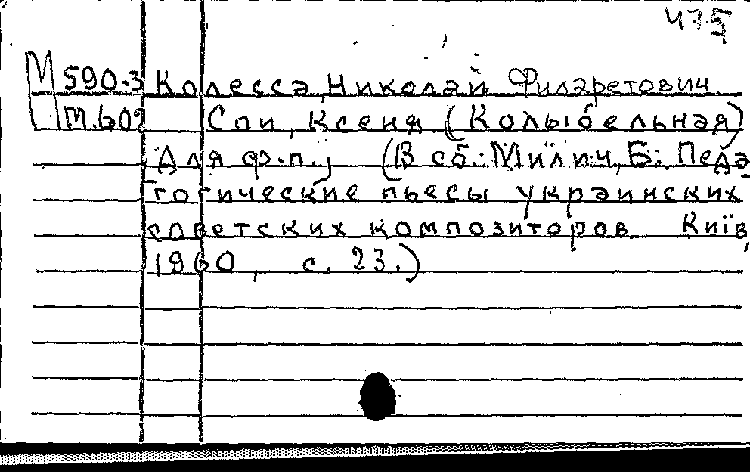 М 590-3 Колесса, Николай Филаретович
Спи, Ксеня (Колыбельная)
Для ф.п.; (В сб.: Милич, Б: Педа
гогические пьесы украинских
советских композиторов Київ,
1960, с. 23.)